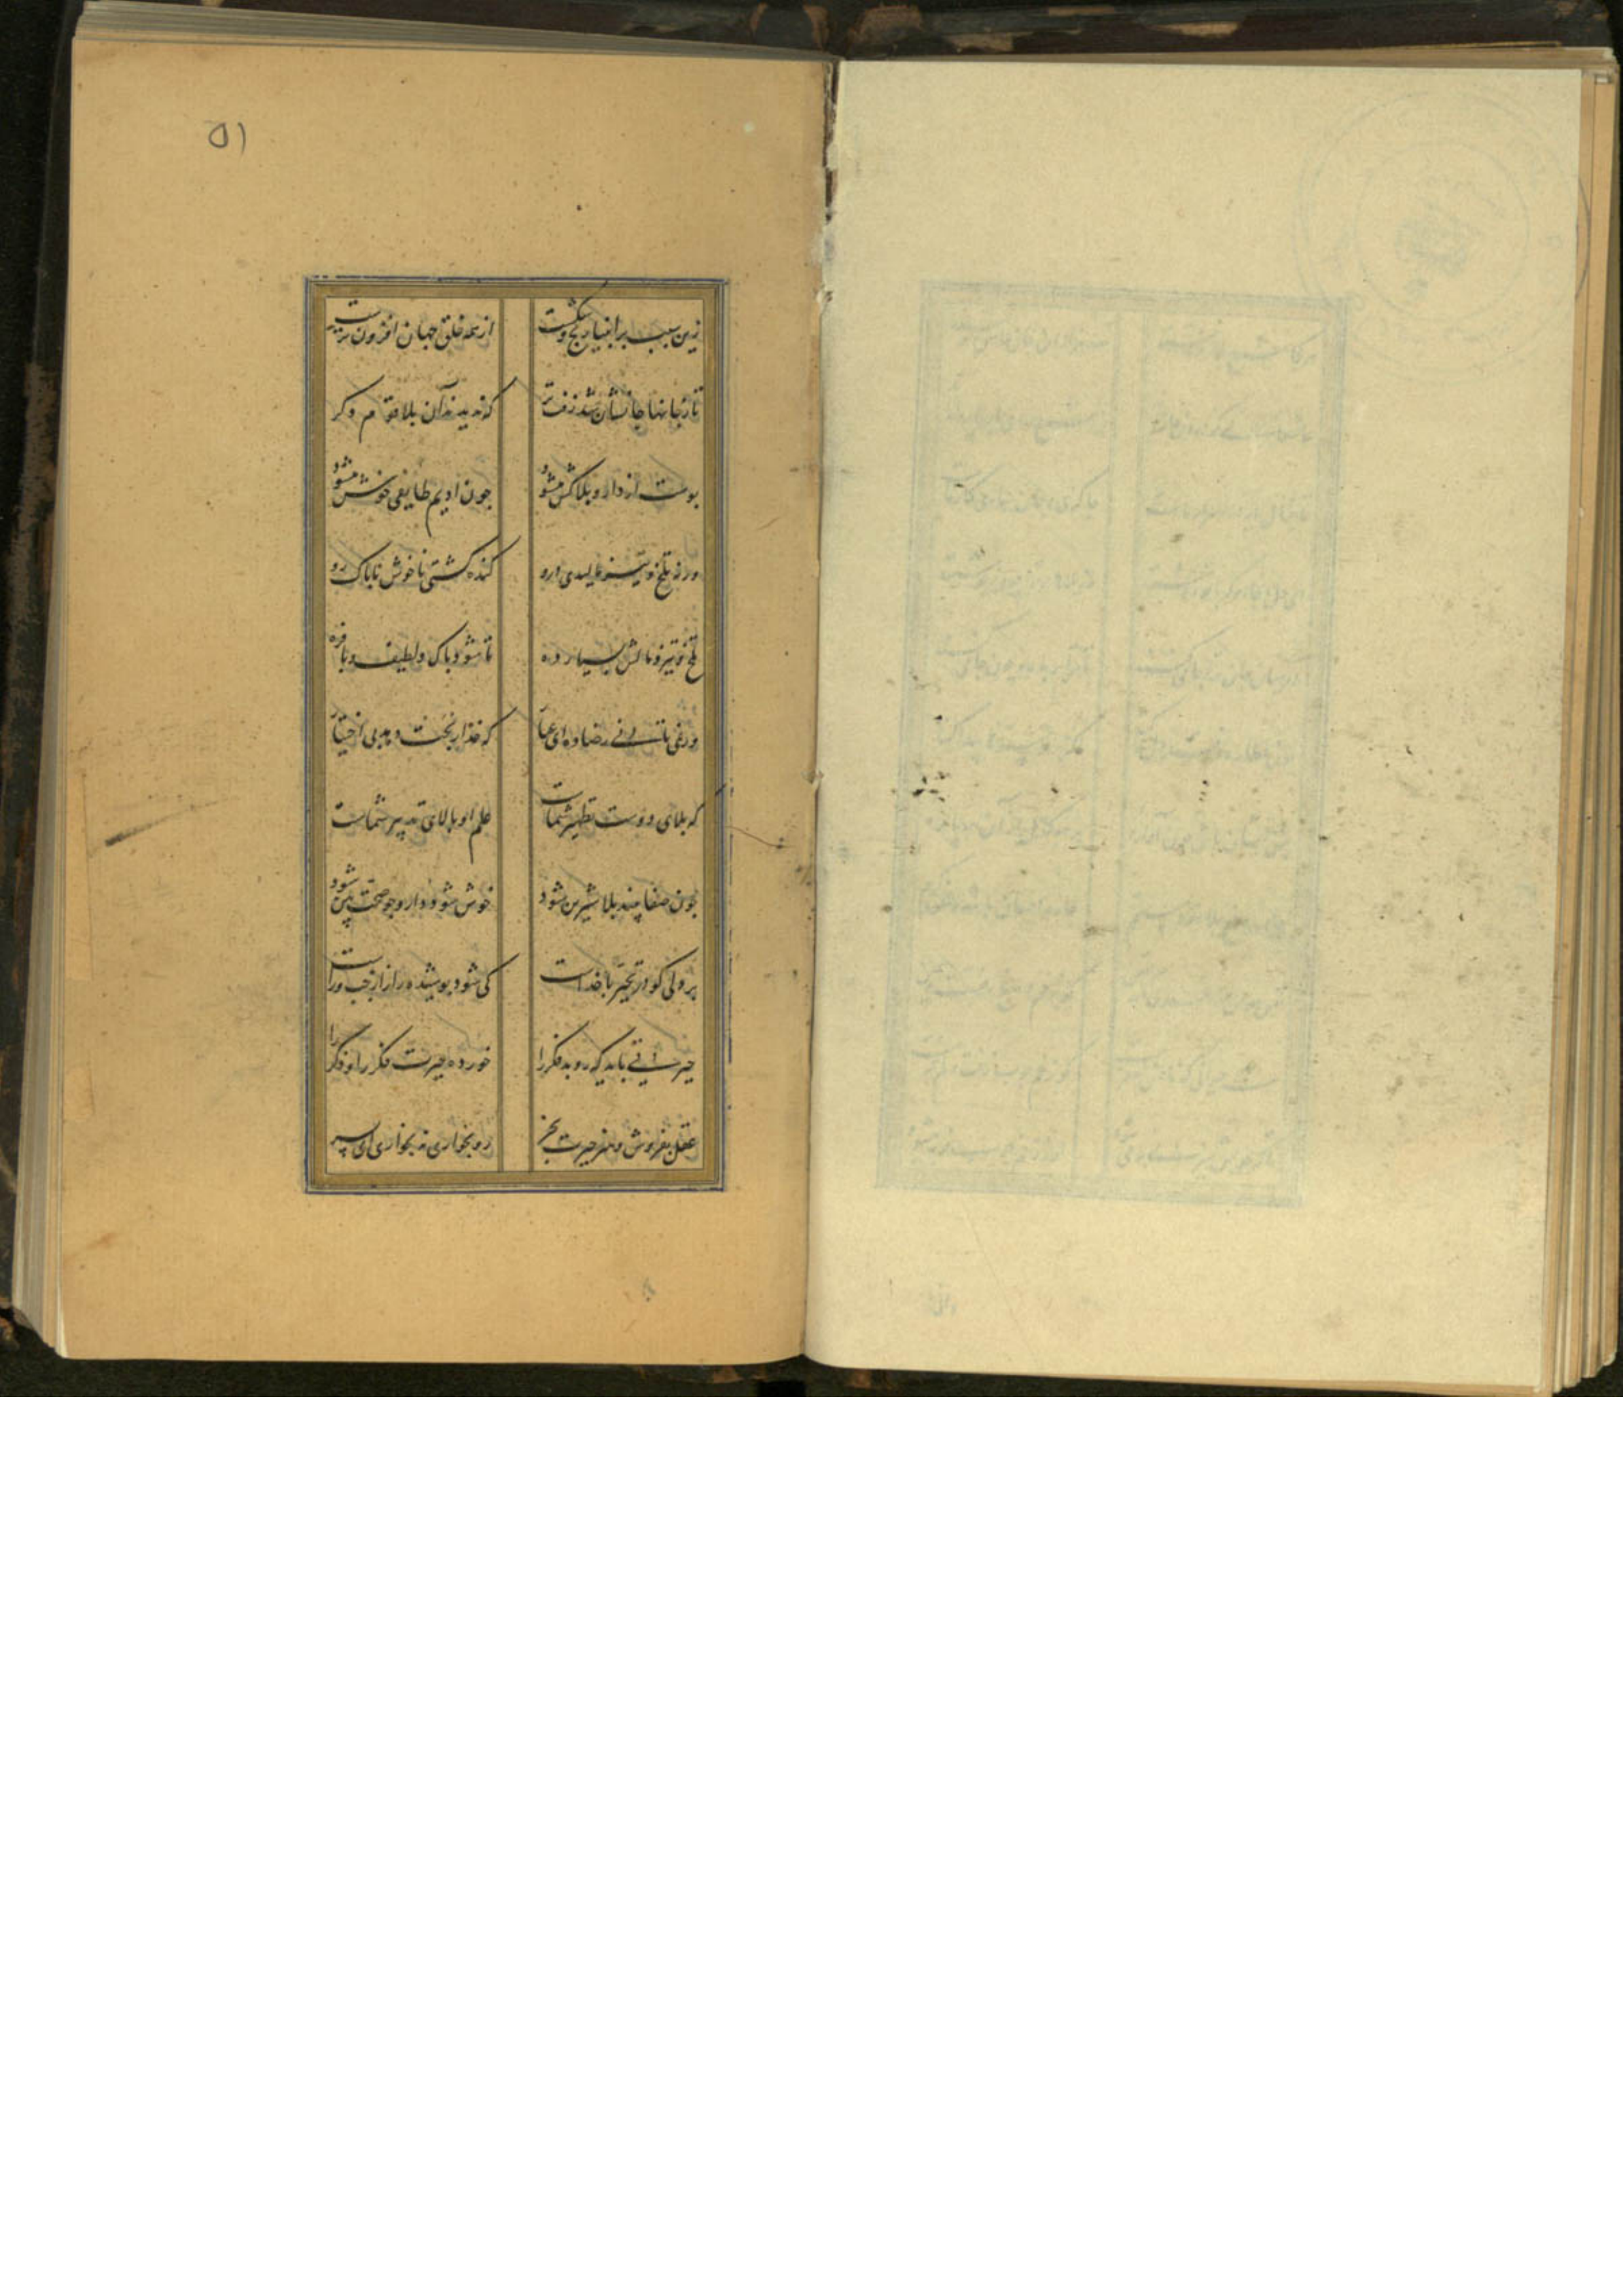 ۵۱
زین سبب بر انبیا رنج و شکست از همه خلق جهان افزون ترست
تا ز جانها جانشان شد زفت تر که ندیدند آن بلا قوم دکر
پوست از دارو بلاکش میشود چون ادیم طایفی خوش میشود
ورنه تلخ و تیز مالیدی درو کنده کشتی ناخوش ناپاک رو
تلخ و تیز و مالش بسیار ده تا شود پاک و لطیف و با فره
ور نمی تانی رضا ده ای عیار که خدا رنجت دهد بی اختیار
که بلای دوست تطهیر شماست علم او بالای تدبیر شماست
چون صفا بیند بلا شیرین شود خوش شود دارو چو صحت بین شود
هر دلی کو در تحیر با خداست کی شود پوشیده راز از چپ و راست
حیرتی باید که روبد فکر را خورده حیرت فکر را و ذکر را
عقل بفروش و هنر حیرت بخر رو بخواری نه بخاری ای پسر